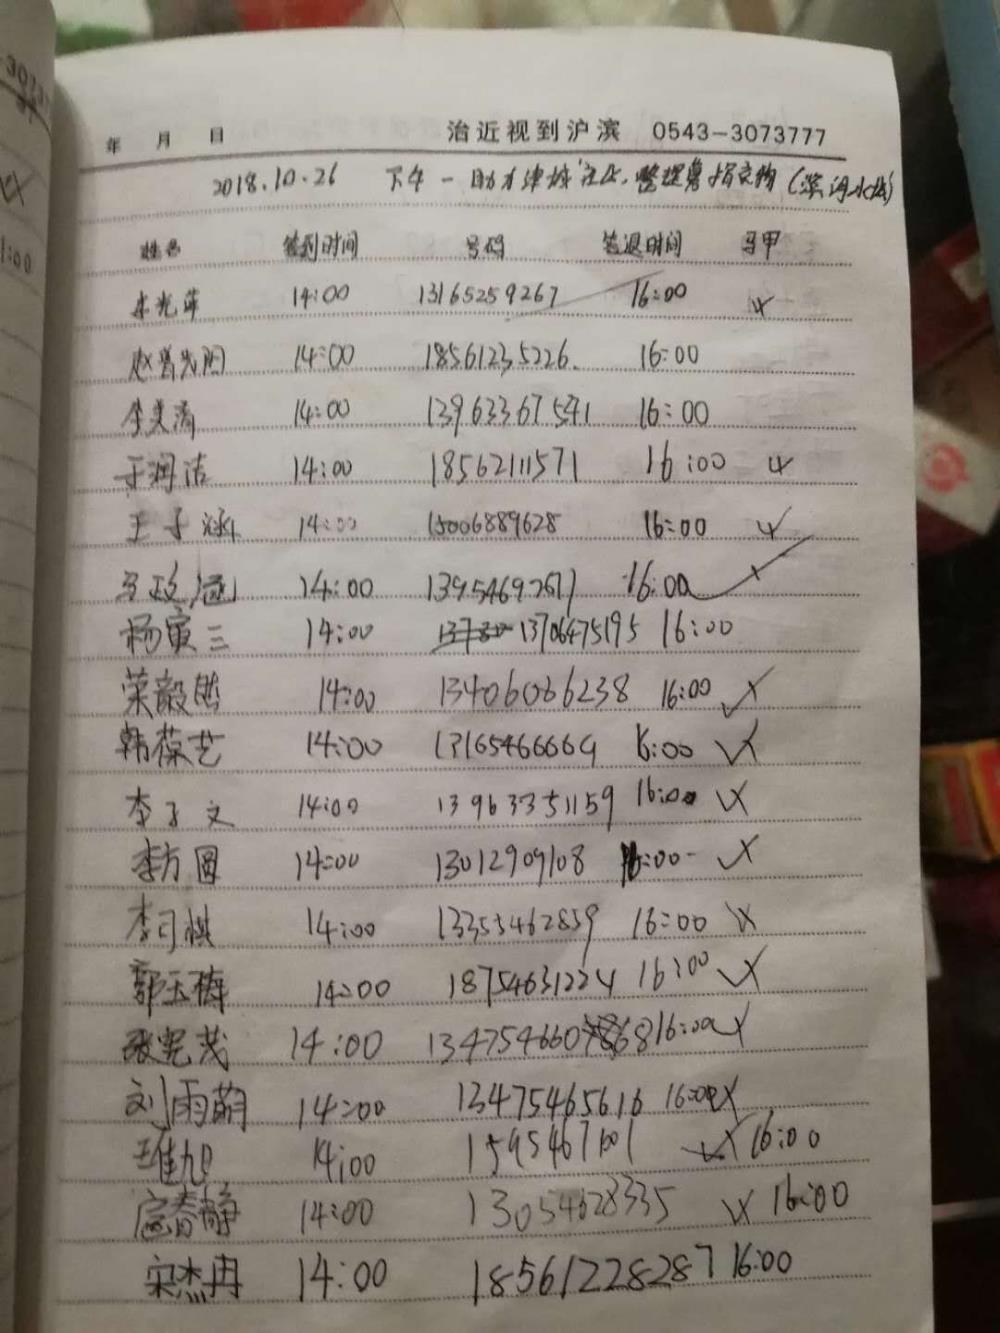 年 月 日 治近视到沪滨 0543-3073777
2018.10.26 下午 一 助力津城 社区，整理募捐衣物（滨河水城）
姓名 签到时间 号码 签退时间 马甲
14:00 13165259267 16:00
14:00 18561235226. 16:00
李美 14:00 13963367591 16:00
于润洁 14:00 18562111571 16:00
王子涵 14:00 15006889628 16:00
马政 14:00 16:00
杨寅三 14:00 13706475195 16:00
荣毅 14:00 13406066238 16:00
韩葆艺 14:00 13165466669 16:00
李子文 14:00 13963351159 16:00
李方圆 14:00 13012909108 16:00
李司棋 14:00 13355462859 16:00
郭玉梅 14:00 18754631224 16:00
张宪茂 14:00 16:00
刘雨萌 14:00 13475465616 16:00
14:00 16:00
寇春静 14:00 13054628335 16:00
宋杰冉 14:00 18561228287 16:00